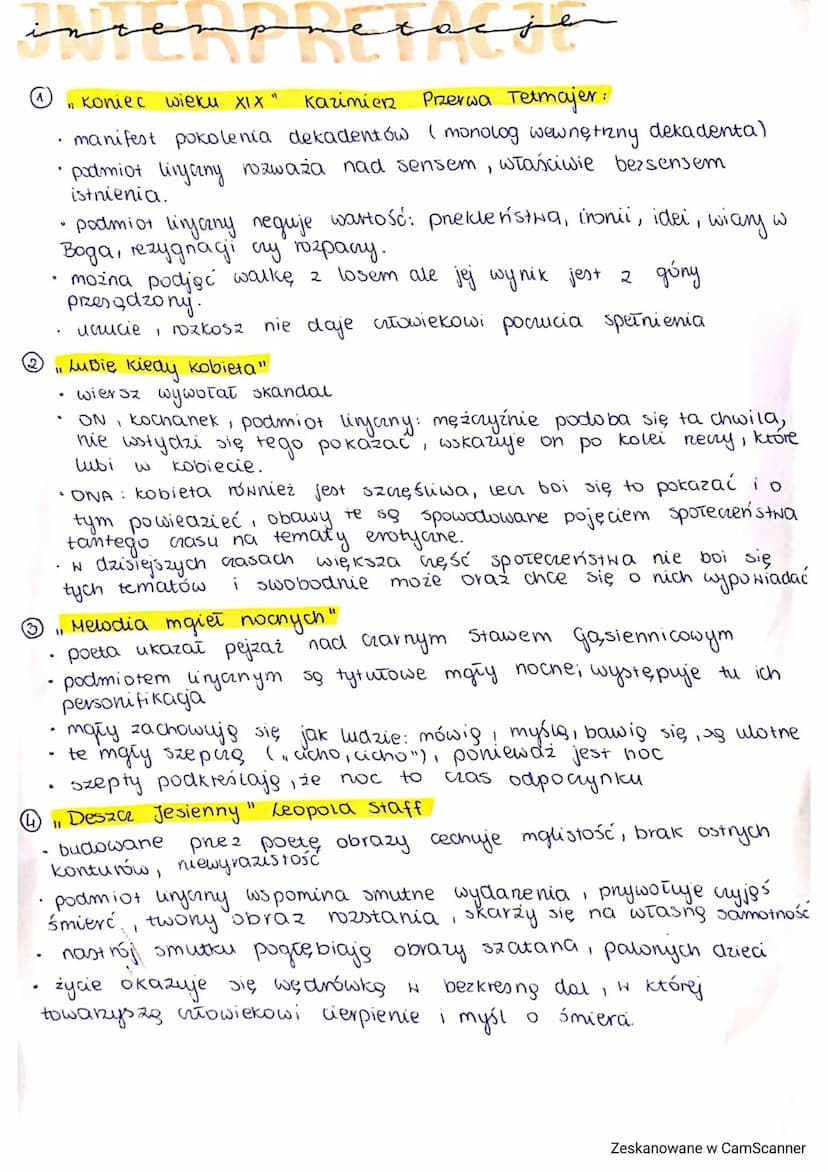 INTERPRETACJE
interpretacje
① "Koniec wieku XIX" Kazimierz Przerwa Tetmajer:
· manifest pokolenia dekadentów (monolog wewnętrzny dekadenta)
· podmiot liryczny rozważa nad sensem, właściwie bezsensem
istnienia.
· podmiot liryczny neguje wartość: przekleństwa, ironii, idei, wiary w
Boga, rezygnacji czy rozpaczy.
· można podjąć walkę z losem ale jej wynik jest z góry
przesądzony.
· uczucie, rozkosz nie daje człowiekowi poczucia spełnienia
② "Lubię kiedy kobieta"
· wiersz wywołał skandal
· ON, kochanek, podmiot liryczny: mężczyźnie podoba się ta chwila,
nie wstydzi się tego pokazać, wskazuje on po kolei rzeczy, które
lubi w kobiecie.
· ONA: kobieta również jest szczęśliwa, lecz boi się to pokazać i o
tym powiedzieć, obawy te są spowodowane pojęciem społeczeństwa
tamtego czasu na tematy erotyczne.
· w dzisiejszych czasach większa część społeczeństwa nie boi się
tych tematów i swobodnie może oraz chce się o nich wypowiadać
③ "Melodia mgieł nocnych"
· poeta ukazał pejzaż nad czarnym Stawem Gąsiennicowym
· podmiotem lirycznym są tytułowe mgły nocne; występuje tu ich
personifikacja
· mgły zachowują się jak ludzie: mówią, myślą, bawią się, są ulotne
· te mgły szepczą ("cicho, cicho"), ponieważ jest noc
· szepty podkreślają, że noc to czas odpoczynku
④ "Deszcz Jesienny" Leopold Staff
· budowane przez poetę obrazy cechuje mglistość, brak ostrych
konturów, niewyrazistość
· podmiot liryczny wspomina smutne wydarzenia, przywołuje czyjąś
śmierć, tworzy obraz rozstania, skarży się na własną samotność
· nastrój smutku pogłębiają obrazy szatana, palonych dzieci
· życie okazuje się wędrówką w bezkresną dal, w której
towarzyszą człowiekowi cierpienie i myśl o śmierci.
Zeskanowane w CamScanner